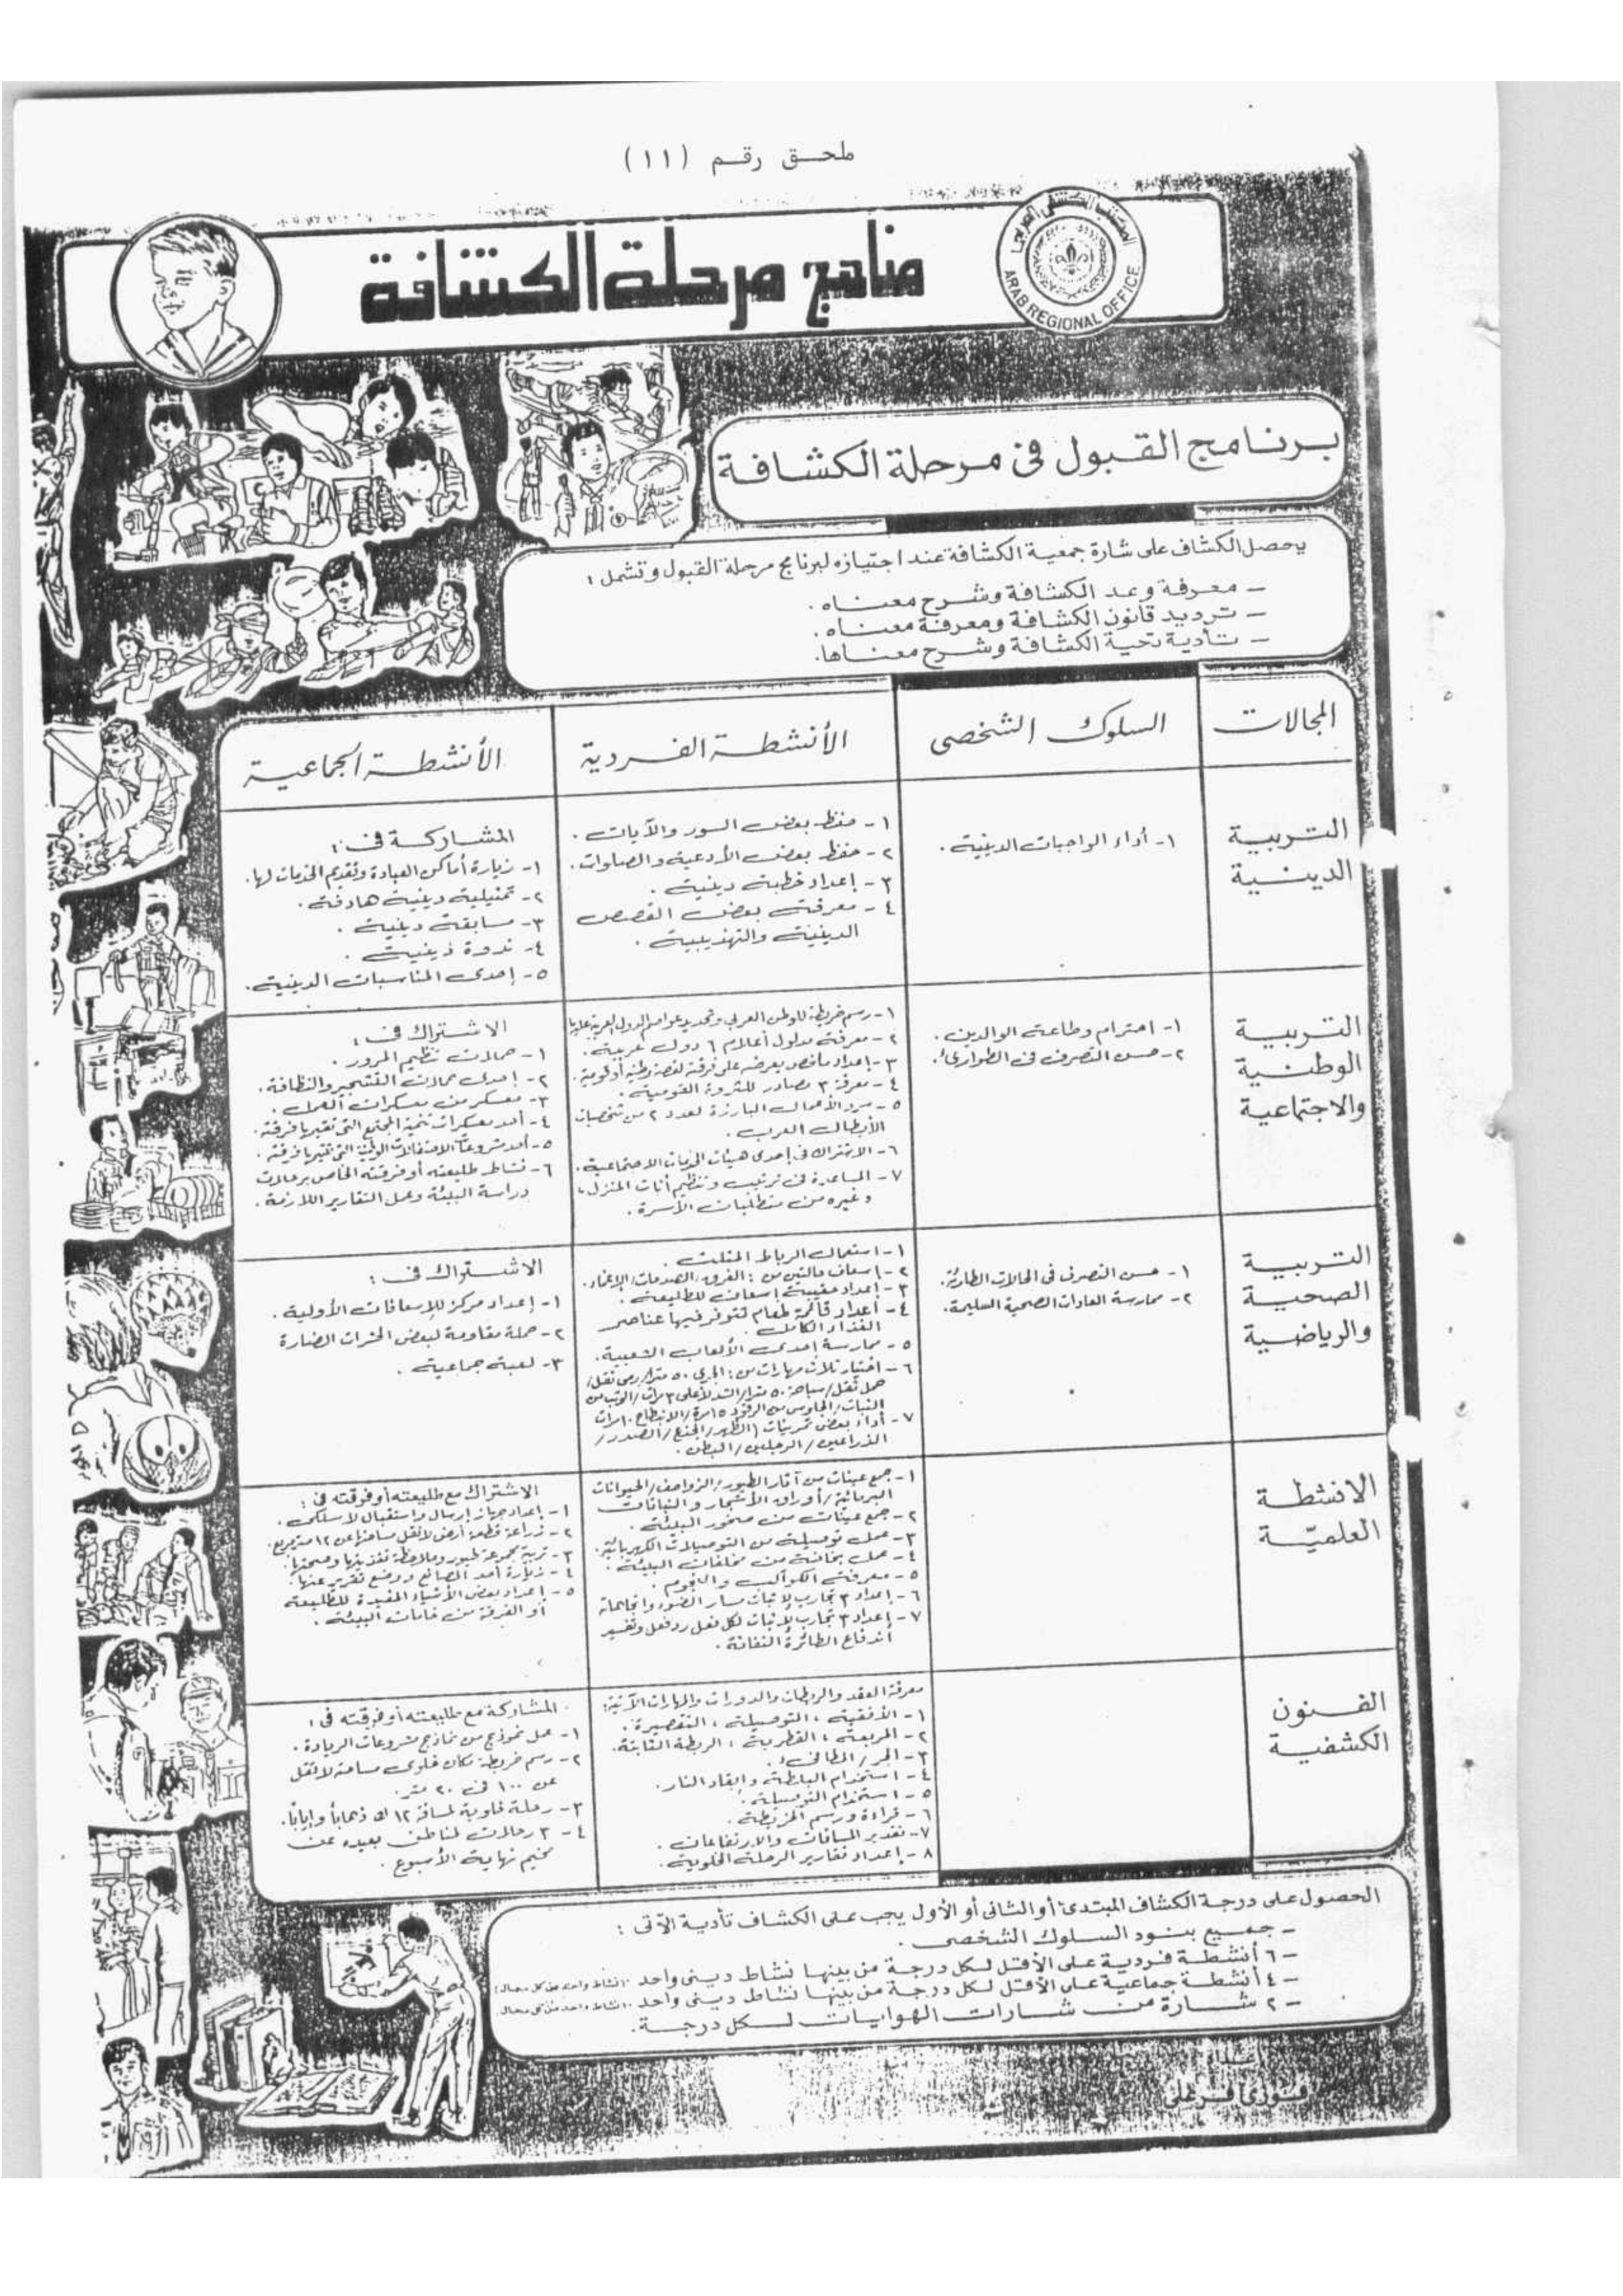 ملحق رقم (١١)
المكتب الكشفى العربى
ARAB REGIONAL OFFICE
مناهج مرحلة الكشافة
برنامج القبول فى مرحلة الكشافة
يحصل الكشاف على شارة جمعية الكشافة عند اجتيازه لبرنامج مرحلة القبول وتشمل :
- معرفة وعد الكشافة وشرح معناه .
- ترديد قانون الكشافة ومعرفة معناه .
- تأدية تحية الكشافة وشرح معناها .
المجالات
السلوك الشخصى
الأنشطة الفردية
الأنشطة الجماعية
التربية
الدينية
١- أداء الواجبات الدينية .
١- حفظ بعض السور والآيات .
٢- حفظ بعض الأدعية والصلوات .
٣- إعداد خطبة دينية .
٤- معرفة بعض القصص
الدينية والتهذيبية .
المشاركة فى :
١- زيارة أماكن العبادة وتقديم الخدمات لها .
٢- تمثيلية دينية هادفة .
٣- مسابقة دينية .
٤- ندوة دينية .
٥- إحدى المناسبات الدينية .
التربية
الوطنية
والاجتماعية
١- احترام وطاعة الوالدين .
٢- حسن التصرف فى الطوارئ .
١- رسم خريطة للوطن العربى وتحديد عواصم الدول العربية عليها
٢- معرفة مدلول أعلام ٦ دول عربية .
٣- إعداد ملخص يعرضه على فرقته لقصة وطنية أو قومية .
٤- معرفة ٣ مصادر للثروة القومية .
٥- سرد الأعمال البارزة لعدد ٢ من شخصيات
الأبطال العرب .
٦- الاشتراك فى إحدى هيئات الخدمات الاجتماعية .
٧- المساعدة فى ترتيب وتنظيم أثاث المنزل ،
وغيره من متطلبات الأسرة .
الاشتراك فى :
١- حملات تنظيم المرور .
٢- إحدى حملات التشجير والنظافة .
٣- معسكر من معسكرات العمل .
٤- أحد معسكرات تنمية المجتمع التى تقيمها فرقته .
٥- أحد مشروعات الاحتفالات الوطنية التى تقيمها فرقته .
٦- نشاط طليعته أو فرقته الخاص برحلات
دراسة البيئة وعمل التقارير اللازمة .
التربية
الصحية
والرياضية
١- حسن التصرف فى الحالات الطارئة .
٢- ممارسة العادات الصحية السليمة .
١- استعمال الرباط المثلث .
٢- إسعاف حالتين من : الغرق/الصدمات/الإغماء .
٣- إعداد حقيبة إسعاف للطليعة .
٤- أعداد قائمة طعام تتوفر فيها عناصر
الغذاء الكامل .
٥- ممارسة إحدى الألعاب الشعبية .
٦- اختيار ثلاث مهارات من : الجرى ٥٠ مترا/رمى ثقل/
حمل ثقل/سباحة ٥٠ مترا/الشد لأعلى ٣ مرات/الوثب من
الثبات/الجلوس من الرقود ١٥ مرة/الانبطاح ١٠ مرات
٧- أداء بعض تمرينات (الظهر/الجذع/الصدر/
الذراعين/الرجلين/البطن .
الاشتراك فى :
١- إعداد مركز للإسعافات الأولية .
٢- حملة مقاومة لبعض الحشرات الضارة
٣- لعبة جماعية .
الانشطة
العلمية
١- جمع عينات من آثار الطيور/الزواحف/الحيوانات
البرمائية/أوراق الأشجار والنباتات
٢- جمع عينات من صخور البيئة .
٣- عمل توصيلة من التوصيلات الكهربائية .
٤- عمل بخامة من مخلفات البيئة .
٥- معرفة الكواكب والنجوم .
٦- إعداد ٣ تجارب لإثبات مسار الضوء واتجاهاته
٧- إعداد ٣ تجارب لإثبات لكل فعل رد فعل وتفسير
أندفاع الطائرة النفاثة .
الاشتراك مع طليعته أو فرقته فى :
١- إعداد جهاز إرسال واستقبال لاسلكى .
٢- زراعة قطعة أرض لاتقل مساحتها عن ١٢ متر مربع .
٣- تربية مجموعة طيور وملاحظة تغذيتها وصحتها .
٤- زيارة أحد المصانع ووضع تقرير عنها .
٥- إعداد بعض الأشياء المفيدة للطليعة
أو الفرقة من خامات البيئة .
الفنون
الكشفية
معرفة العقد والربطات والدورات والمهارات الآتية :
١- الأفقية ، التوصيلة ، التقصيرة .
٢- المربعة ، القطرية ، الربطة الثابتة .
٣- الجر / المطافى .
٤- استخدام البلطة وإيقاد النار .
٥- استخدام البوصلة .
٦- قراءة ورسم الخريطة .
٧- تقدير المسافات والارتفاعات .
٨- إعداد تقارير الرحلة الخلوية .
المشاركة مع طليعته أو فرقته فى :
١- عمل نموذج من نماذج مشروعات الريادة .
٢- رسم خريطة مكان خلوى مساحته لاتقل
عن ١٠٠ فى ٢٠ متر .
٣- رحلة خلوية لمسافة ١٢ ك ذهابا وإيابا .
٤- ٣ رحلات لمناطق بعيده عن
مخيم نهاية الأسبوع .
الحصول على درجة الكشاف المبتدئ أو الثانى أو الأول يجب على الكشاف تأدية الآتى :
- جميع بنود السلوك الشخصى .
- ٦ أنشطة فردية على الأقل لكل درجة من بينها نشاط دينى واحد (نشاط واحد من كل مجال)
- ٤ أنشطة جماعية على الأقل لكل درجة من بينها نشاط دينى واحد (نشاط واحد من كل مجال)
- ٢ شارة من شارات الهوايات لكل درجة .